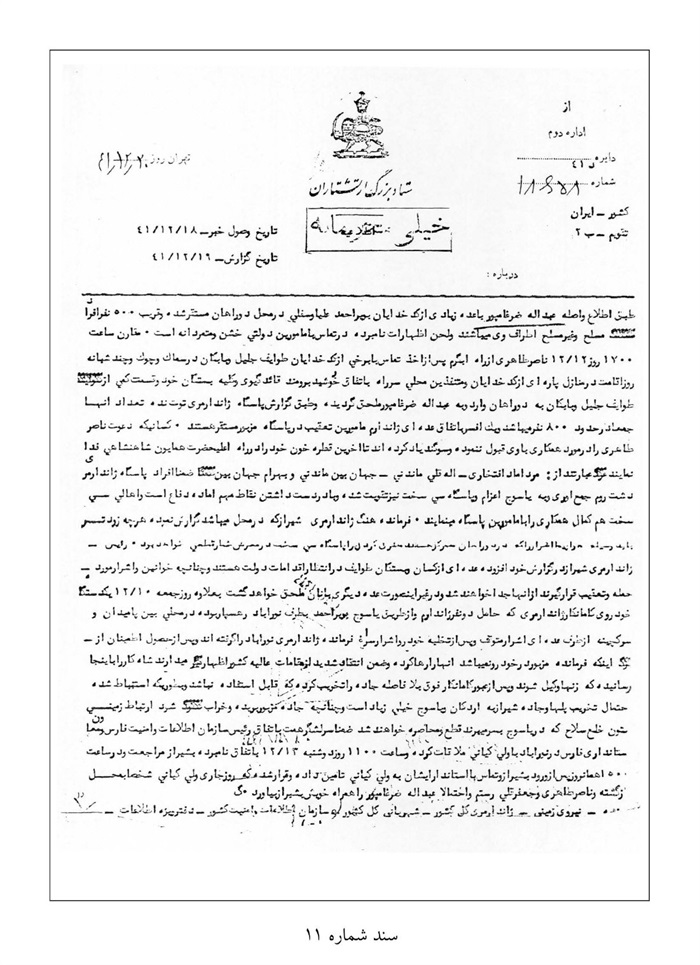 از
اداره دوم
دایره د ۴۱
شماره
تهران روز
ستاد بزرگ ارتشتاران
کشور ــ ایران
تقویم ــ ب ۲
خیلی محرمانه
تاریخ وصول خبر ــ ۴۱/۱۲/۱۸
تاریخ گزارش ــ ۴۱/۱۲/۱۶
درباره :
طبق اطلاع واصله عبداله ضرغامپور باعده زیادی از کدخدایان بویراحمد علیا و سفلی در محل دوراهان مستقر شده و قریب ۵۰۰ نفر افراد
مسلح و غیر مسلح اطراف وی میباشند ولحن اظهارات نامبرده در تماس با مامورین دولتی خشن و متمردانه است ۰ مقارن ساعت
۱۷۰۰ روز ۱۲/۱۲ ناصر طاهری از راه ایگرم پس از اخذ تماس با برخی از کدخدایان طوایف جلیل و بابکان در سماك وچوك و چند شبانه
روز اقامت در منازل پاره ای از کدخدایان و متنفذین محلی سرراه باتفاق خورشید برومند قائدگیوی وکلیه بستگان خود و قسمت کمی از
طوایف جلیل و بابکان به دوراهان وارد و به عبداله ضرغامپور ملحق گردیده و طبق گزارش پاسگاه ژاندارمری توت نده تعداد آنها
جمعا در حدود ۸۰۰ نفر میباشد ویك افسر باتفاق عده ای ژاندارم مامورین تعقیب در پاسگاه مزبور مستقر هستند ۰ کسانیکه دعوت ناصر
طاهری را در مورد همکاری با وی قبول ننموده و سوگند یاد کرده اند تا آخرین قطره خون خود را در راه اعلیحضرت همایون شاهنشاهی فدای
نمایند عبارتند از : مرداماد افتخاری ــ اله قلی ماندنی ــ جهان بین ماندنی و بهرام جهان بین ضمنا افراد پاسگاه ژاندارمری
دشت روم جمع آوری وبه یاسوج اعزام و پاسگاه سی سخت نیز تقویت شده وبادردست داشتن نقاط مهم آماده دفاع است و اهالی سی
سخت هم کمال همکاری را با مامورین پاسگاه مینمایند ۰ فرمانده هنگ ژاندارمری شیراز که در محل میباشد گزارش نموده هرچه زودتر
باید وسیله هواپیما اشرار را که در دوراهان متمرکز هستند متفرق کردن را پاسگاه سی سخت در معرض خطر قطعی خواهد بود ۰ رئیس ــ
ژاندارمری شیراز در گزارش خود افزوده عده ای از کسان و بستگان طوایف در انتظار اقدامات دولت هستند و چنانچه خوانین و اشرار مورد ــ
حمله و تعقیب قرار گیرند از آنها جدا خواهند شد و در غیر اینصورت عده دیگری بآنان ملحق خواهد گشت بعلاوه روز جمعه ۱۲/۱۰ یکدستگاه
خودروی کامانکار ژاندارمری که حامل دونفر ژاندارم و از طریق یاسوج بویراحمد بطرف نورآباد رهسپار بوده در محلی بین پامیدان و
سرکپینه از طرف عده ای اشرار متوقف و پس از تخلیه خودرو اشرار سراغ فرمانده ژاندارمری نورآباد را گرفته اند و پس از حصول اطمینان از ــ
اینکه فرمانده مزبور در خودرو نمیباشد آنها را رها کرده و ضمن انتقاد شدید از مقامات عالیه کشور اظهار میدارند شاه کار را باینجا
رسانیده که زنها وکیل شوند و پس از عبور کامانکار فوق بلا فاصله جاده را تخریب کرده که قابل استفاده نباشد و بطوریکه استنباط شده
احتمال تخریب پلها و جاده شیراز به اردکان و یاسوج خیلی زیاد است و چنانچه جاده مزبور بریده و خراب شود ارتباط زمینی
ستون خلع سلاح که در یاسوج بسر میبرند قطع و محاصره خواهند شد ضمنا سرلشگر همت باتفاق رئیس سازمان اطلاعات و امنیت فارس و معاون
استانداری فارس در نورآباد با ولی کیانی ملاقات کرده و ساعت ۱۱۰۰ روز دوشنبه ۱۲/۱۳ باتفاق نامبرده بشیراز مراجعت و در ساعت
۵۰۰ همانروز پس از ورود بشیراز و تماس با استاندار ایشان به ولی کیانی تامین داده و قرار شده که روز جاری ولی کیانی شخصا بمحل
برگشته و ناصر طاهری و جعفرقلی رستم و احتمالا عبداله ضرغامپور را همراه خویش بشیراز بیاورد
نیروی زمینی ــ ژاندارمری کل کشور ــ شهربانی کل کشور و سازمان اطلاعات و امنیت کشور ــ دفتر ویژه اطلاعات ــ
سند شماره ۱۱